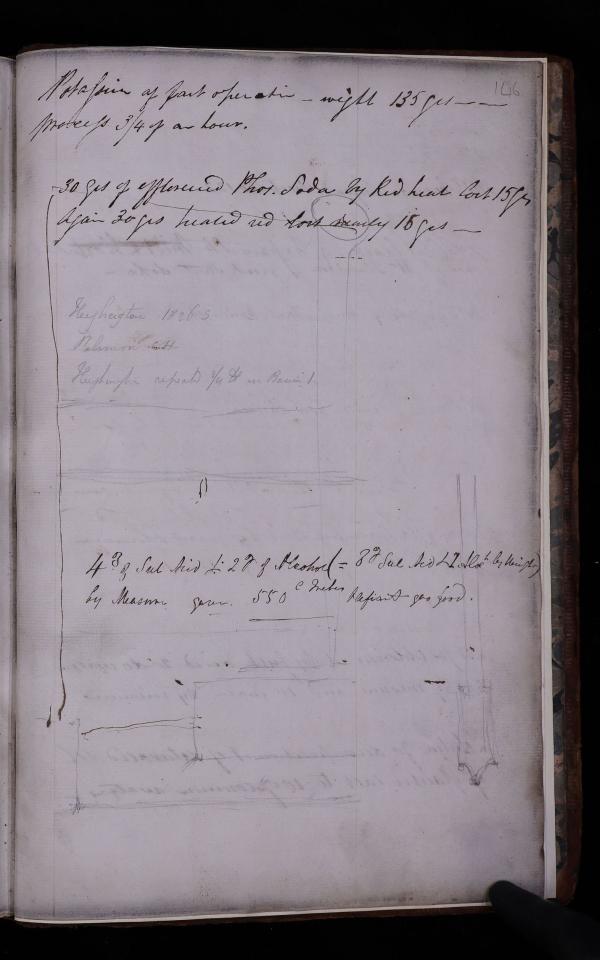 166
Potassium of last operation - weight 135 grs
process 3/4 of an hour.
30 grs of effloresced Phos. Soda by Red heat lost 15 grs
Again 30 grs heated red lost nearly 18 grs
Heighington
repeats 1/4
4 ℥ of Sul Acid & 2 ℥ of Alcohol (= 8 Sul. Acid by Weight)
by Measure gave 550 c Inches Olefiant gas good.